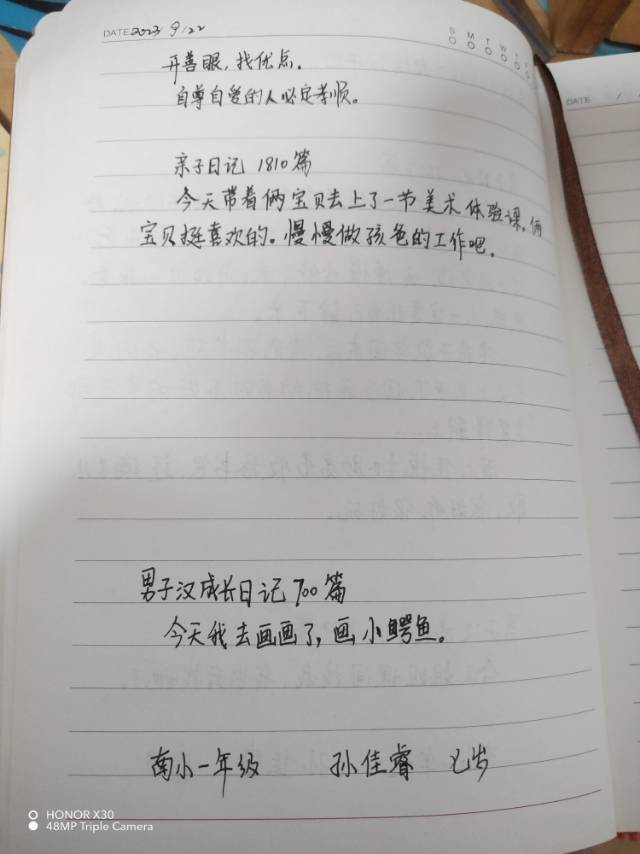 DATE 2023 9/22
S M T W T F
开善眼，找优点。
自尊自爱的人必定孝顺。
DATE / /
亲子日记 1810篇
今天带着俩宝贝去上了一节美术体验课，俩
宝贝挺喜欢的。慢慢做孩爸的工作吧。
男子汉成长日记 700篇
今天我去画画了，画小鳄鱼。
南小一年级 孙佳睿 七岁
HONOR X30
48MP Triple Camera